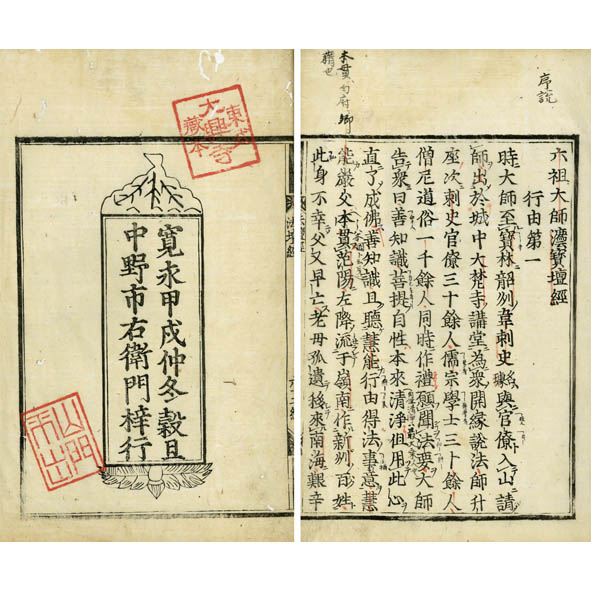 序説
六祖大師灋寶壇經
行由第一
時大師至寶林韶州韋刺史名璩與官僚入山請
師出於城中大梵寺講堂為衆開緣說法師升
座次刺史官僚三十餘人儒宗學士三十餘人
僧尼道俗一千餘人同時作禮願聞法要大師
告衆曰善知識菩提自性本來清淨但用此心
直了成佛善知識且聽慧能行由得法事意慧
能嚴父本貫范陽左降流于嶺南作新州百姓
此身不幸父又早亡老母孤遺後來南海艱辛
大興寺
藏本
寛永甲戌仲冬穀旦
中野市右衛門梓行
山門
不出